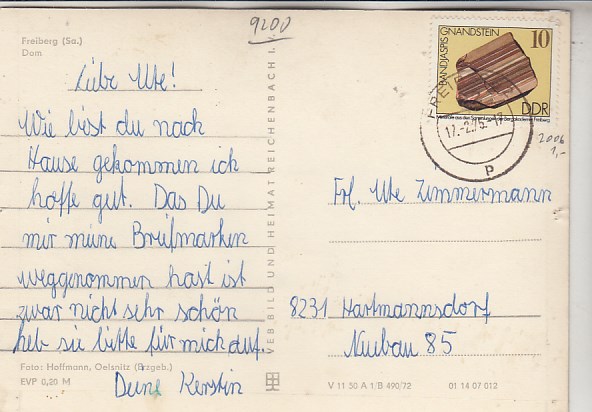 9200
Freiberg (Sa.)
Dom
Liebe Ute!
Wie bist du nach
Hause gekommen ich
hoffe gut. Das Du
mir meine Briefmarken
weggenommen hast ist
zwar nicht sehr schön
heb sie bitte für mich auf.
Foto: Hoffmann, Oelsnitz (Erzgeb.)
EVP 0,20 M
Deine Kerstin
VEB BILD UND HEIMAT REICHENBACH i. V.
BANDJASPIS GNANDSTEIN
10
DDR
Minerale aus den Sammlungen der Bergakademie Freiberg
17.-2.75.-17
p
2006
1,-
Frl. Ute Zimmermann
8231 Hartmannsdorf
Neubau 85
V 11 50 A 1/B 490/72
01 14 07 012